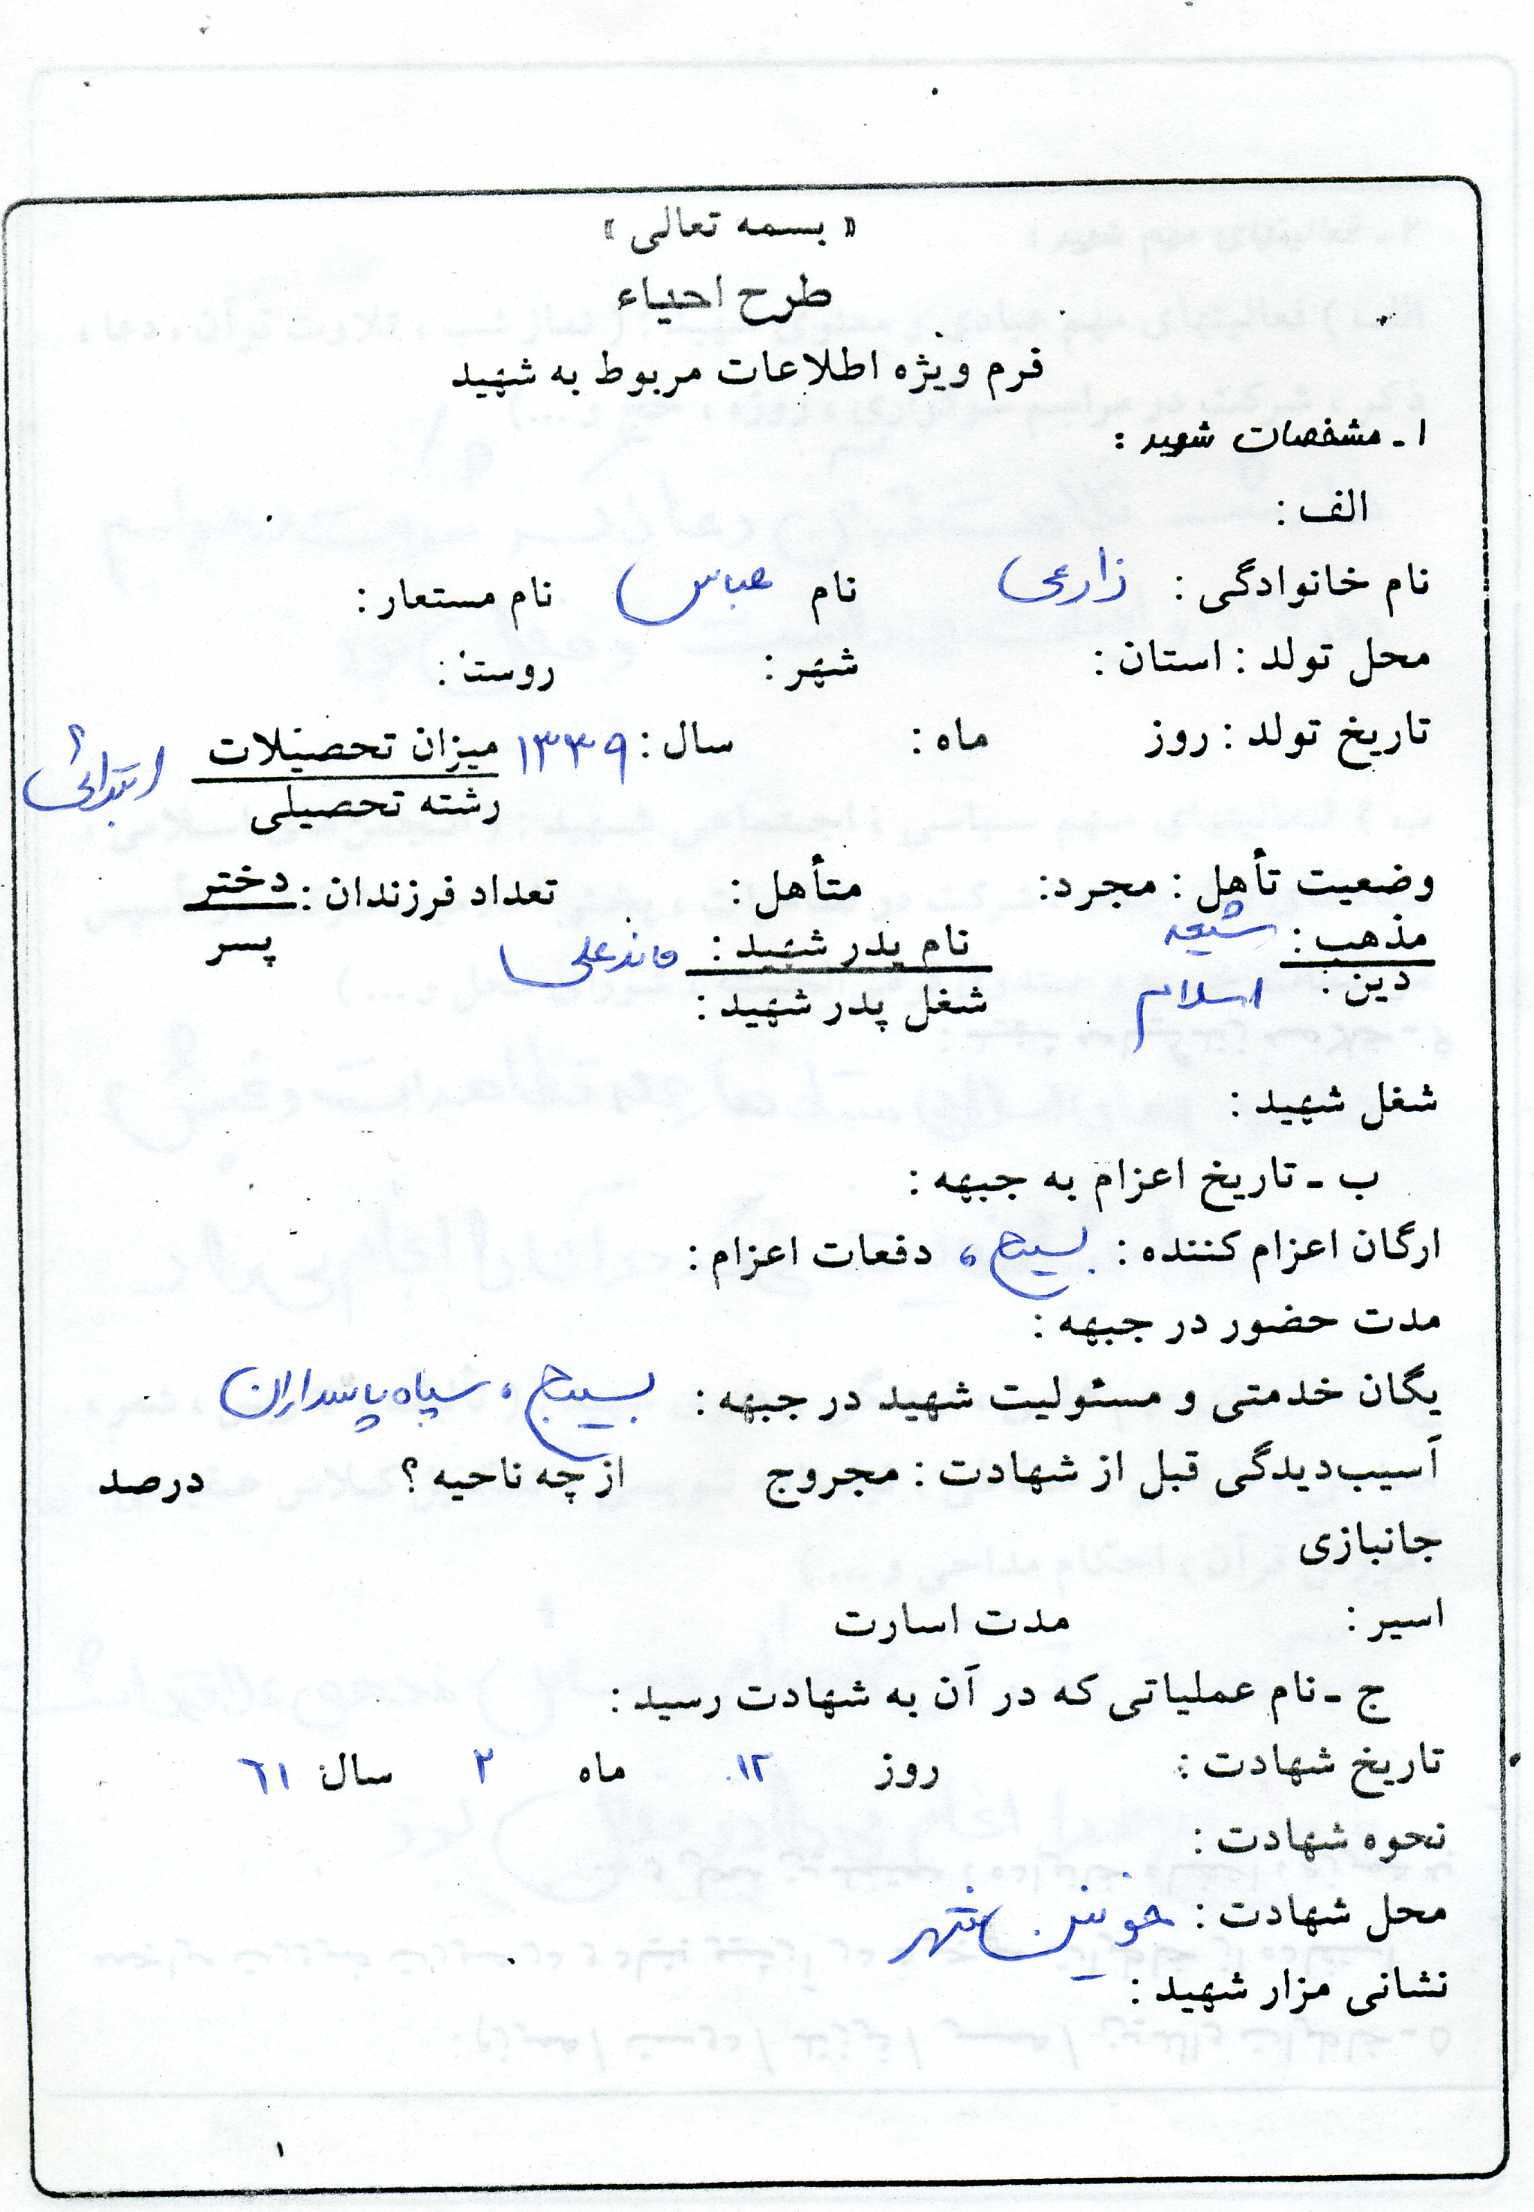 « بسمه تعالی »
طرح احیاء
فرم ویژه اطلاعات مربوط به شهید
۱ ـ مشخصات شهید :
الف :
نام خانوادگی : زارعی نام عباس نام مستعار :
محل تولد : استان : شهر : روستا :
تاریخ تولد : روز ماه : سال : ۱۳۳۹ میزان تحصیلات ابتدائی
رشته تحصیلی
وضعیت تأهل : مجرد: متأهل : تعداد فرزندان : دختر
پسر
مذهب : شیعه نام پدر شهید :
دین : اسلام شغل پدر شهید :
شغل شهید :
ب ـ تاریخ اعزام به جبهه :
ارگان اعزام کننده : بسیج دفعات اعزام :
مدت حضور در جبهه :
یگان خدمتی و مسئولیت شهید در جبهه : بسیج، سپاه پاسداران
آسیب‌دیدگی قبل از شهادت : مجروح از چه ناحیه ؟ درصد
جانبازی
اسیر : مدت اسارت
ج ـ نام عملیاتی که در آن به شهادت رسید :
تاریخ شهادت : روز ۱۲ ماه ۲ سال ۶۱
نحوه شهادت :
محل شهادت : خونین شهر
نشانی مزار شهید :
۱